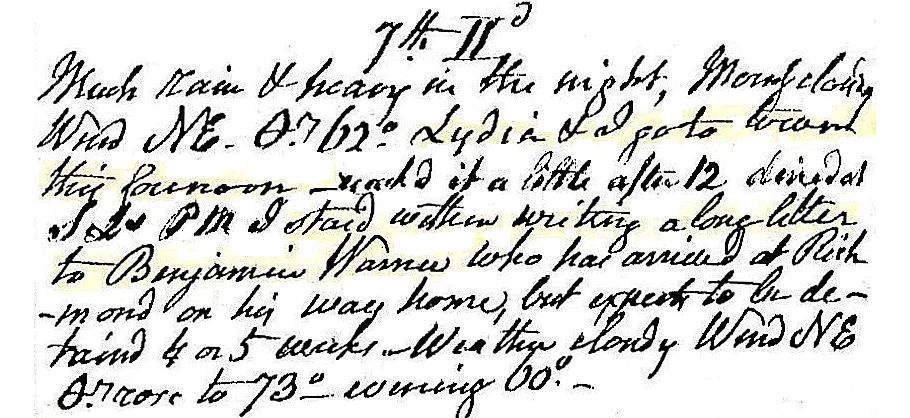 7th. II d
Much rain & heavy in the night, Morng cloudy
Wind NE - 62° Lydia & I go to town
this forenoon - reach'd it a little after 12 dined at
PM I staid within writing a long letter
to Benjamin Warner who has arrived at Rich
-mond on his way home, but expects to be de-
taind 4 or 5 weeks - Weather cloudy Wind NE
rose to 73° - evening 60° -